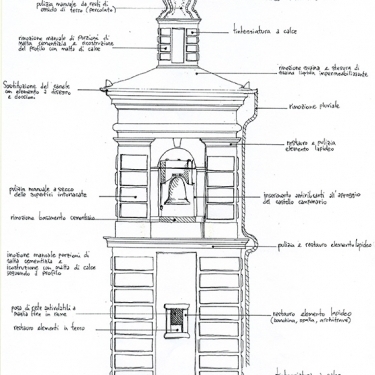 pulizia manuale da resti di
tinteggiatura a calce
rimozione manuale di porzioni di
malta cementizia e ricostruzione
del profilo con malta di calce
rimozione guaina e stesura di
guaina liquida impermeabilizzante
Sostituzione del canale
con elemento a disegno
e doccioni
rimozione pluviale
restauro e pulizia
elemento lapideo
pulizia manuale a secco
delle superfici intonacate
inserimento antivibranti all'appoggio
del castello campanario
rimozione basamento cementizio
pulizia e restauro elemento lapideo
rimozione manuale porzioni di
malta cementizia e
ricostruzione con malta di calce
seguendo il profilo
posa di rete antivolatili a
maglia fine in rame
restauro elemento lapideo
restauro elementi in ferro